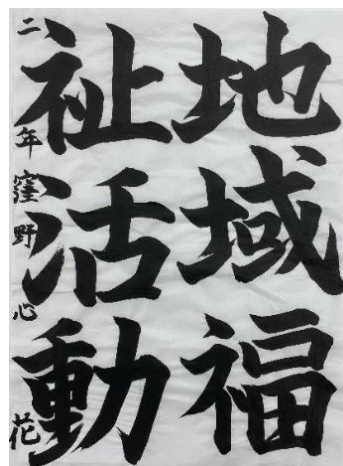 地域福
祉活動
二年窪野心花